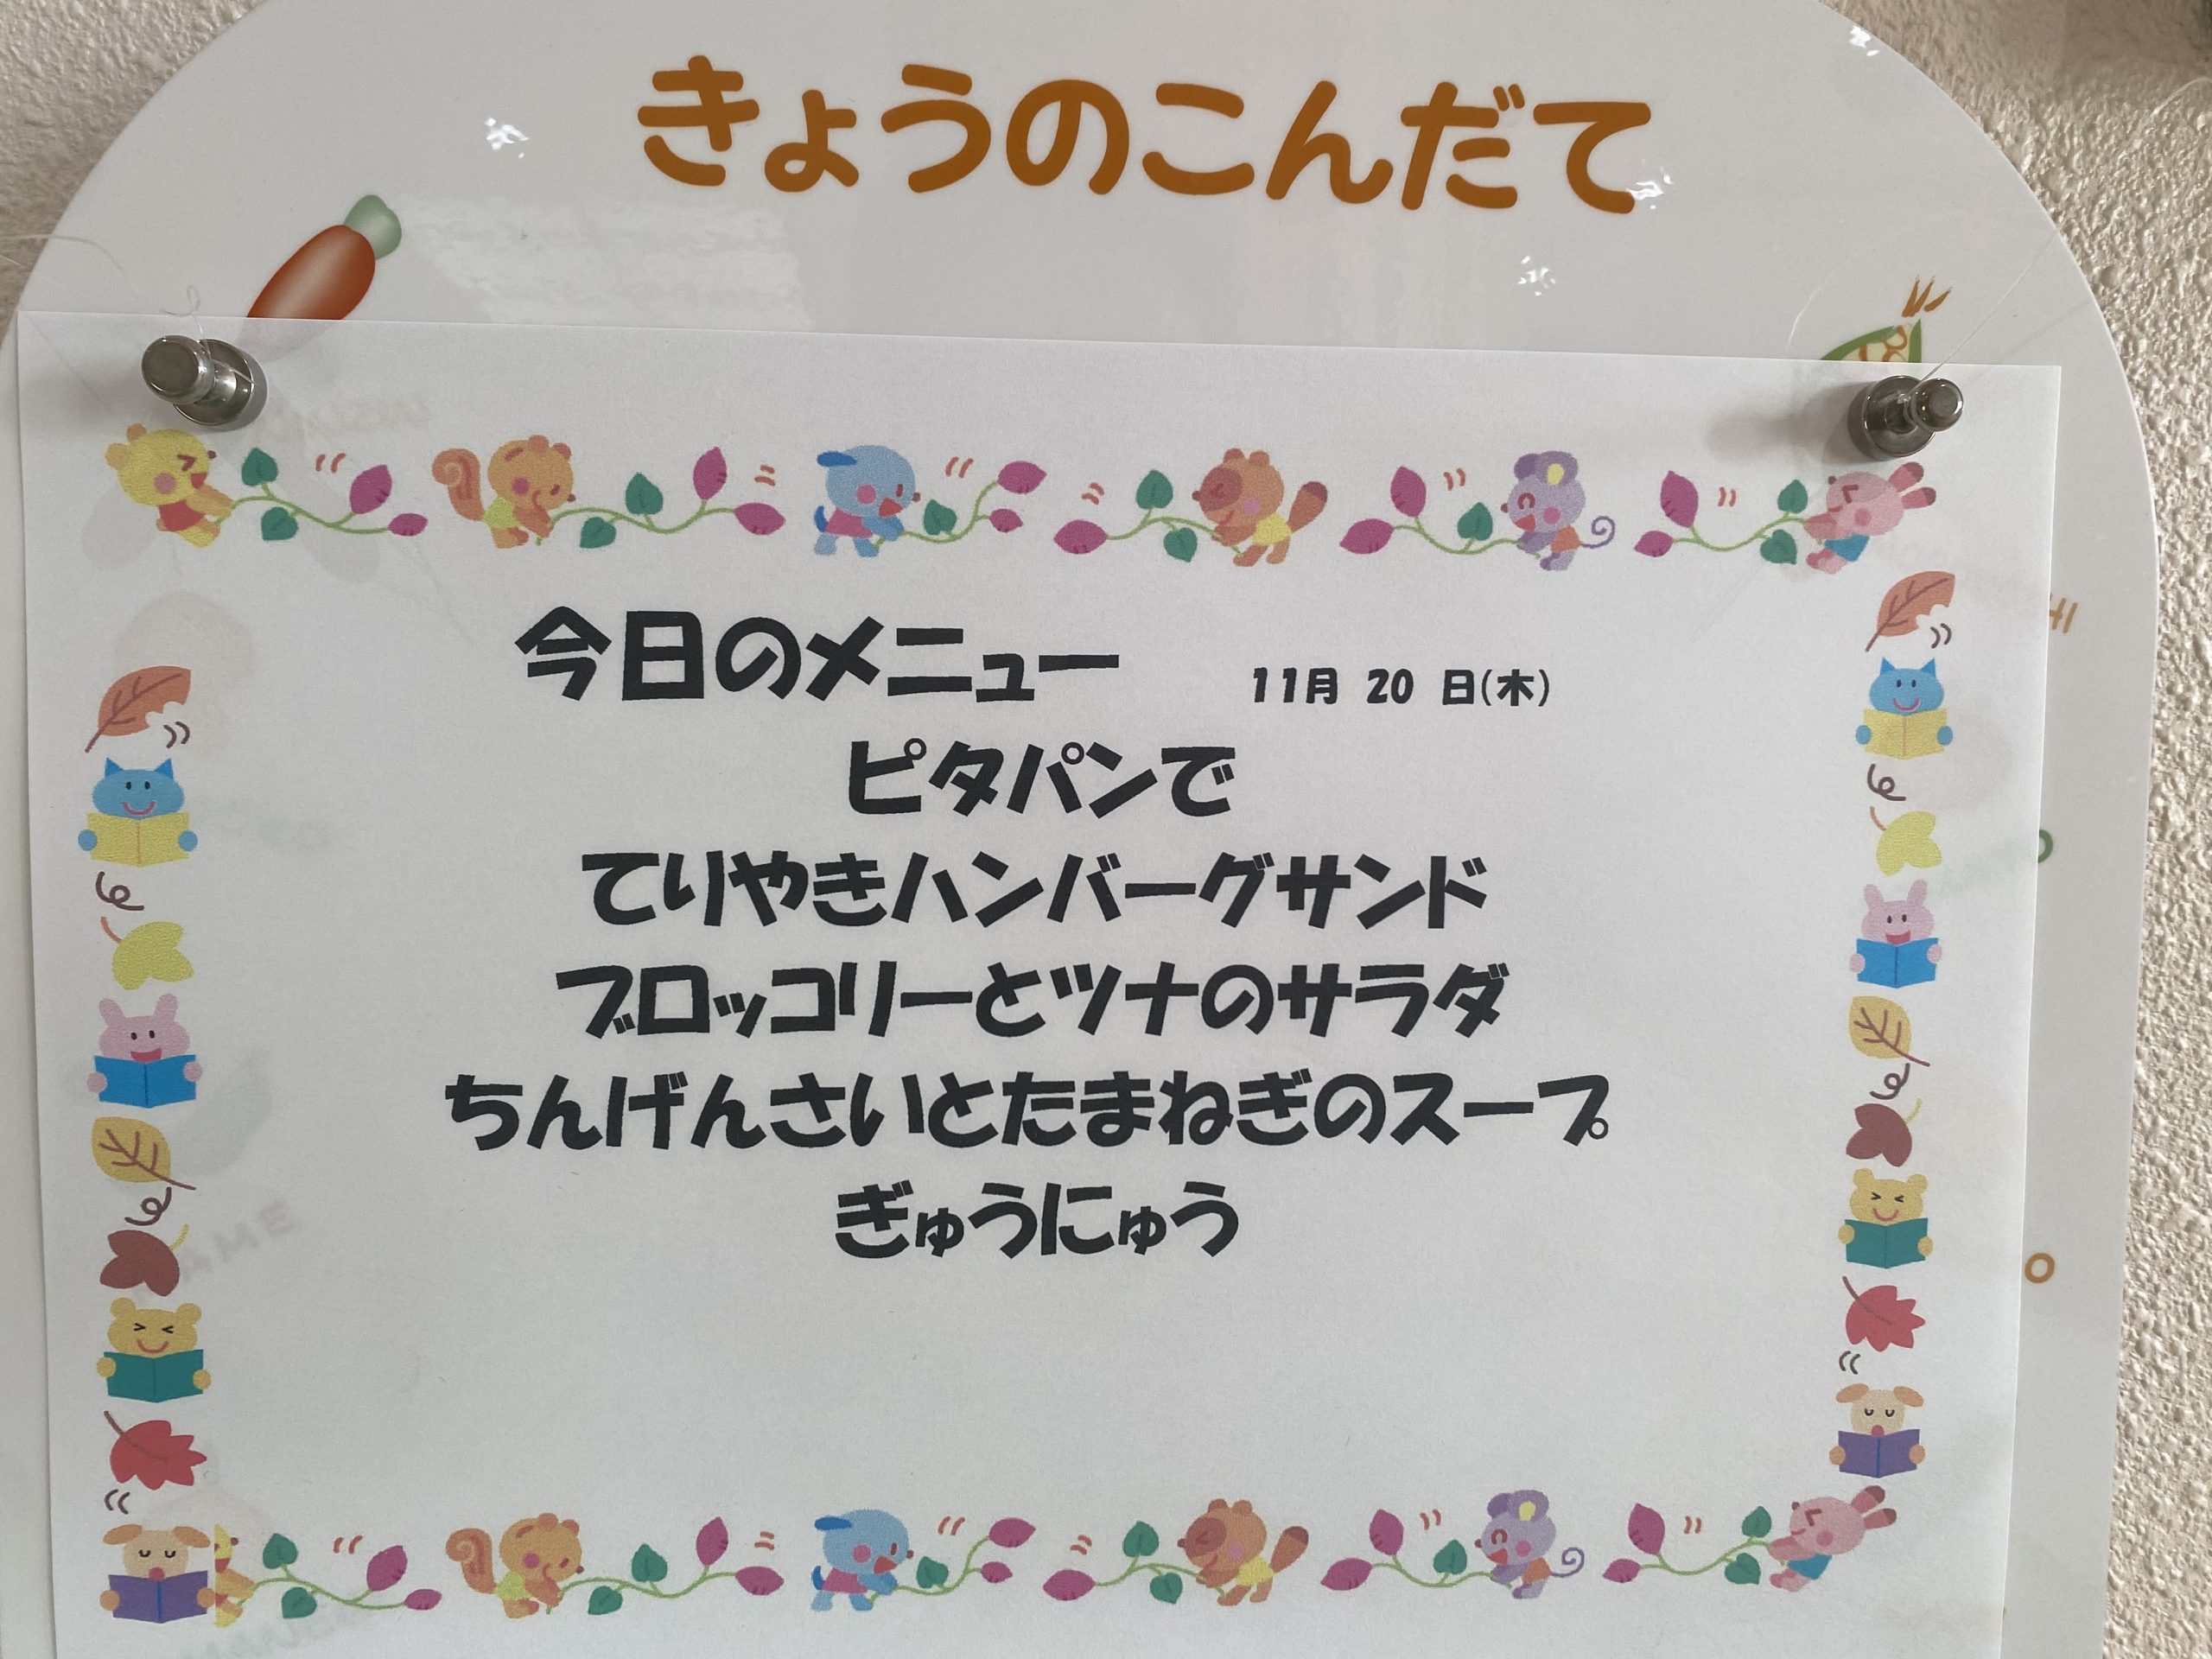 きょうのこんだて
今日のメニュー 11月 20 日(木)
ピタパンで
てりやきハンバーグサンド
ブロッコリーとツナのサラダ
ちんげんさいとたまねぎのスープ
ぎゅうにゅう